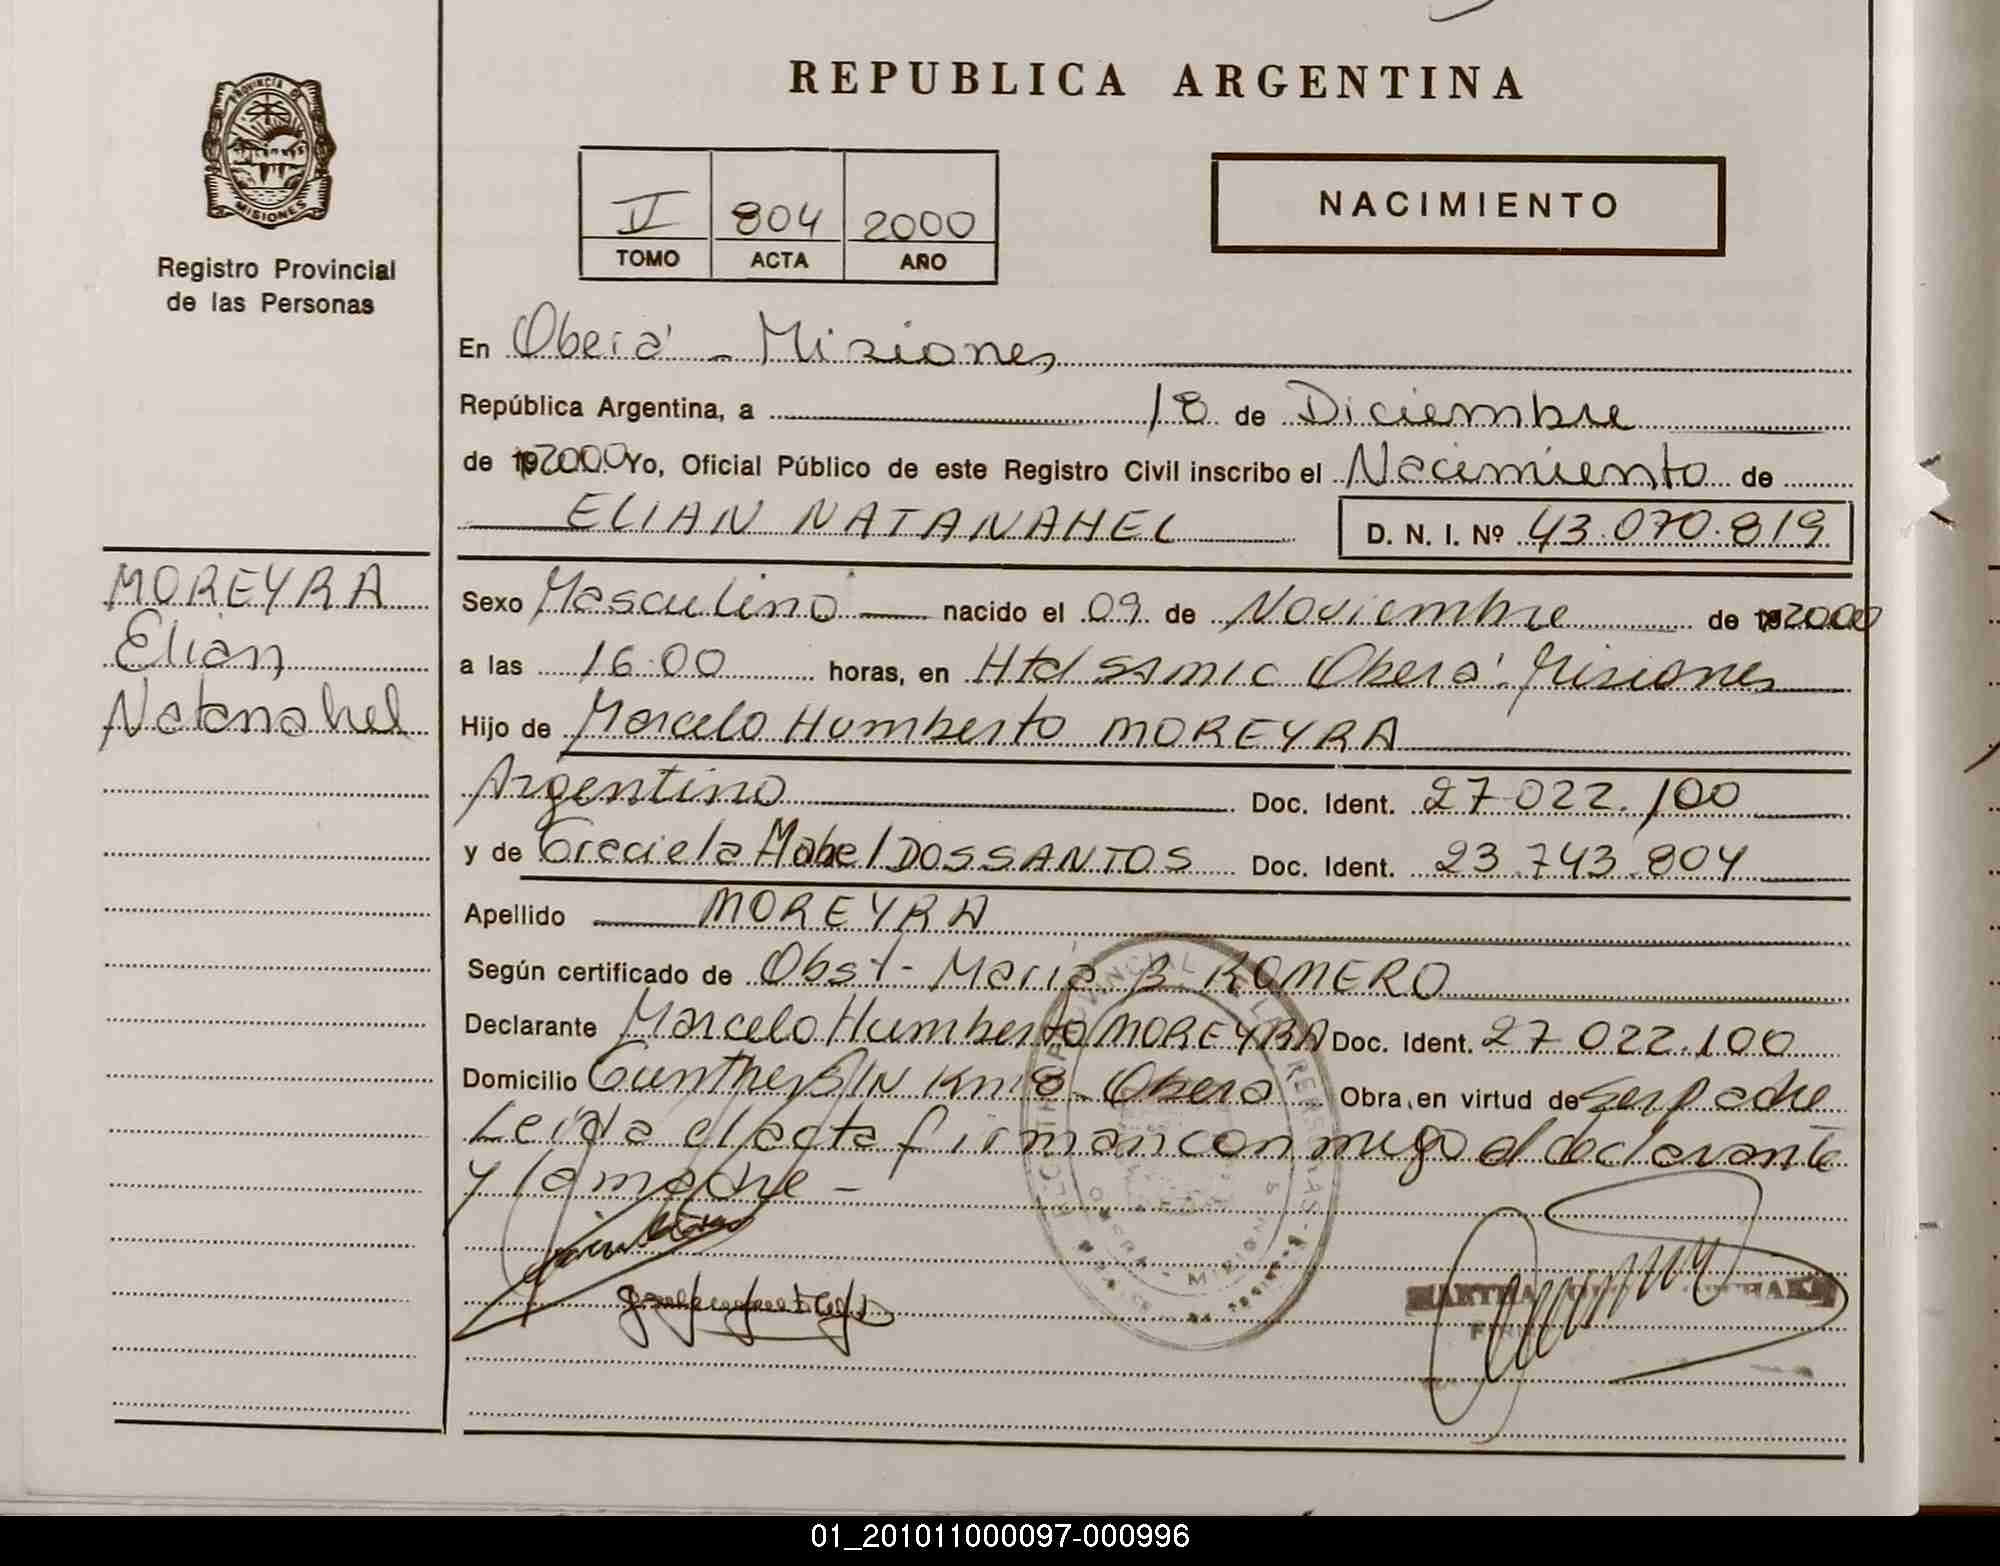 REPUBLICA ARGENTINA
PROVINCIA DE
MISIONES
Registro Provincial
de las Personas
V 804 2000
TOMO ACTA AÑO
NACIMIENTO
En Oberá - Misiones
República Argentina, a 18 de Diciembre
de 192000 Yo, Oficial Público de este Registro Civil inscribo el Nacimiento de
ELIAN NATANAHEL D. N. I. Nº 43.070.819
MOREYRA
Elian
Natanahel
Sexo Masculino nacido el 09 de Noviembre de 192000
a las 16:00 horas, en Htal SAMIC Oberá - Misiones
Hijo de Marcelo Humberto MOREYRA
Argentino Doc. Ident. 27.022.100
y de Graciela Mabel DOSSANTOS Doc. Ident. 23.743.804
Apellido MOREYRA
Según certificado de Obst - Maria B ROMERO
Declarante Marcelo Humberto MOREYRA Doc. Ident. 27.022.100
Domicilio Gunther S/N Km 8 - Oberá Obra, en virtud de Ser padre
Leida el acta firman conmigo el declarante
y la madre -
01_201011000097-000996